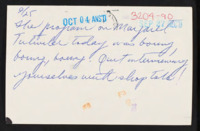 9/25
OCT 04 ANS'D
3204-90
The program on Margaret
Tutwiler today was boring
boring, boring. Quit interviewing
yourselves with shop talk!